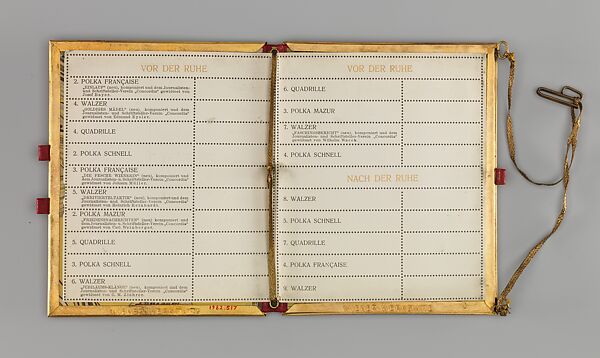 VOR DER RUHE
2. POLKA FRANÇAISE
„EINLAUF“ (neu), komponiert und dem Journalisten-
und Schriftsteller-Verein „Concordia“ gewidmet von
Josef Bayer.
4. WALZER
komponiert und dem
Journalisten- und Schriftsteller-Verein „Concordia“
gewidmet von Edmund Eysler.
4. QUADRILLE
2. POLKA SCHNELL
3. POLKA FRANÇAISE
(neu), komponiert und dem
Journalisten- und Schriftsteller-Verein „Concordia“
gewidmet von
5. WALZER
(neu), komponiert und dem
Journalisten- und Schriftsteller-Verein „Concordia“
gewidmet von Heinrich Reinhardt.
2. POLKA MAZUR
„FRIEDENSNACHRICHTEN“ (neu), komponiert und dem
Journalisten- u. Schriftsteller-Verein „Concordia“
gewidmet von Carl Weinberger.
5. QUADRILLE
3. POLKA SCHNELL
6. WALZER
„JUBILÄUMS-KLÄNGE“ (neu), komponiert und dem
Journalisten- und Schriftsteller-Verein „Concordia“
gewidmet von C. M. Ziehrer.
1982.517
VOR DER RUHE
6. QUADRILLE
3. POLKA MAZUR
7. WALZER
„FASCHINGSBERICHT“ (neu), komponiert und dem
Journalisten- und Schriftsteller-Verein „Concordia“
gewidmet von Wilhelm Wacek.
4. POLKA SCHNELL
NACH DER RUHE
8. WALZER
5. POLKA SCHNELL
7. QUADRILLE
4. POLKA FRANÇAISE
9. WALZER